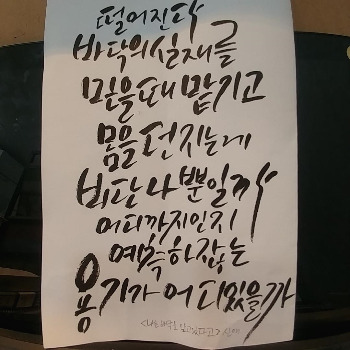 떨어진다
바닥의 실재를
믿을때 맡기고
몸을 던지는게
비단 나 뿐일까
어디까지인지
예측하잖는
용기가 어디있을까